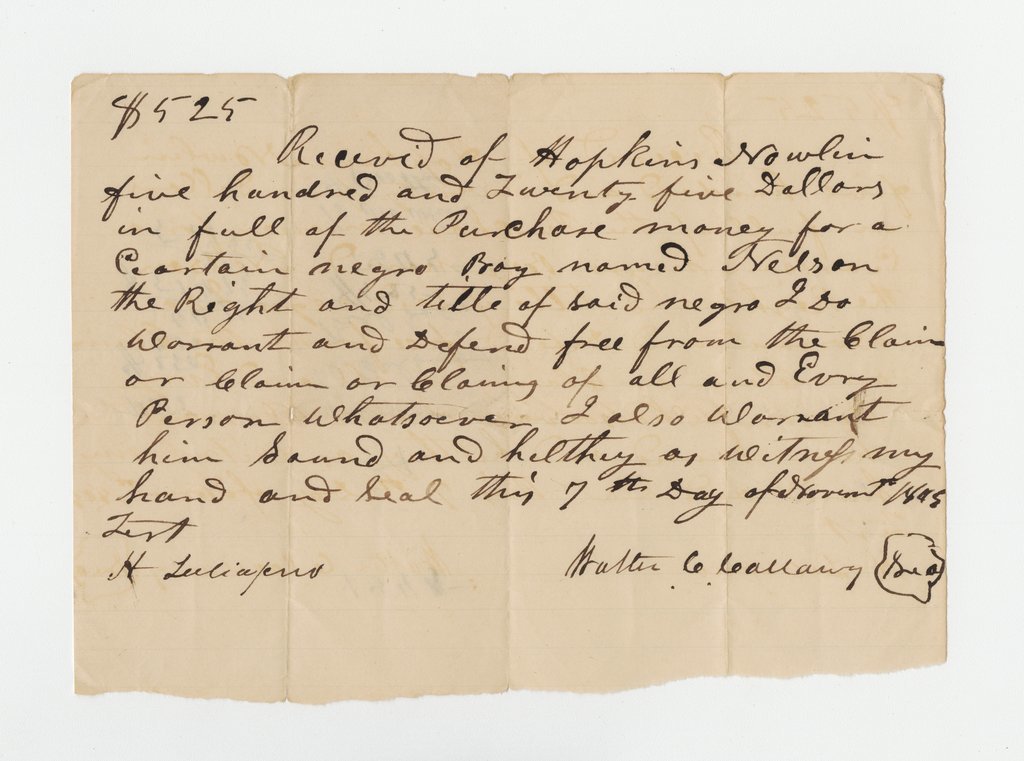 $525
Receevid of Hopkins Nowlin
five hundred and Twenty five Dollars
in full of the Purchase money for a
Ceartain negro Boy named Nelson
the Right and title of said negro I Do
Warrant and Defend free from the Claim
or Claim or Claims of all and Evry
Person Whatsoever I also Warrant
him Sound and helthey as witness my
hand and Seal this 7th Day of Novemr
Test
H
Walter C Callaway Seal